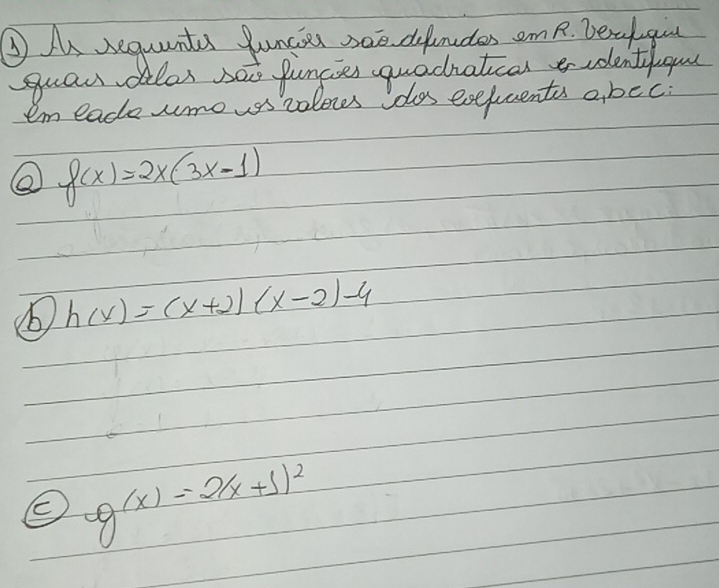 1 As seguintes funções são definidas em R. Verifique
quais delas são funções quadraticas e identifique
em cada uma os valores dos coeficientes a, b e c:
a f(x)=2x(3x-1)
b h(x)=(x+2)(x-2)-4
c g(x)=2(x+1)²